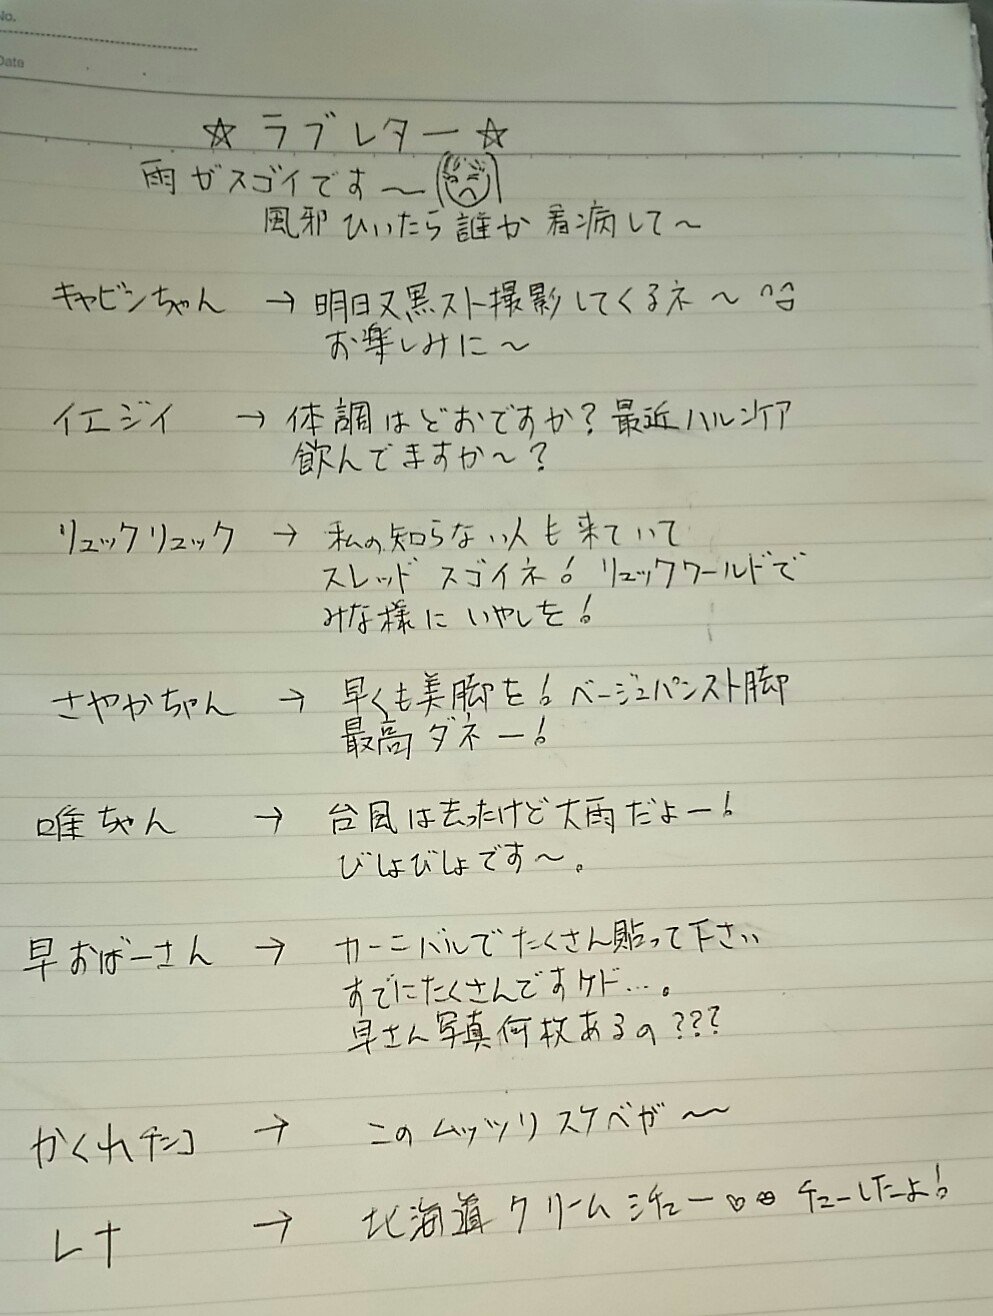 No.
Date
☆ ラブレター ☆
雨ガスゴイです〜
風邪ひいたら誰か看病して〜
キャビンちゃん → 明日又黒スト撮影してくるネ〜 ^^
お楽しみに〜
イエジイ → 体調はどおですか?最近ハルンケア
飲んでますか〜?
リュックリュック → 私の知らない人も来ていて
スレッド スゴイネ! リュックワールドで
みな様に いやしを!
さやかちゃん → 早くも美脚を!ベージュパンスト脚
最高ダネー!
唯ちゃん → 台風は去ったけど大雨だよー!
びしょびしょです〜。
早おばーさん → カーニバルでたくさん貼って下さい
すでにたくさんですケド…。
早さん写真何枚あるの???
かくれチンコ → このムッツリスケベが〜
レナ → 北海道クリームシチュー♡ チューしたーよ!